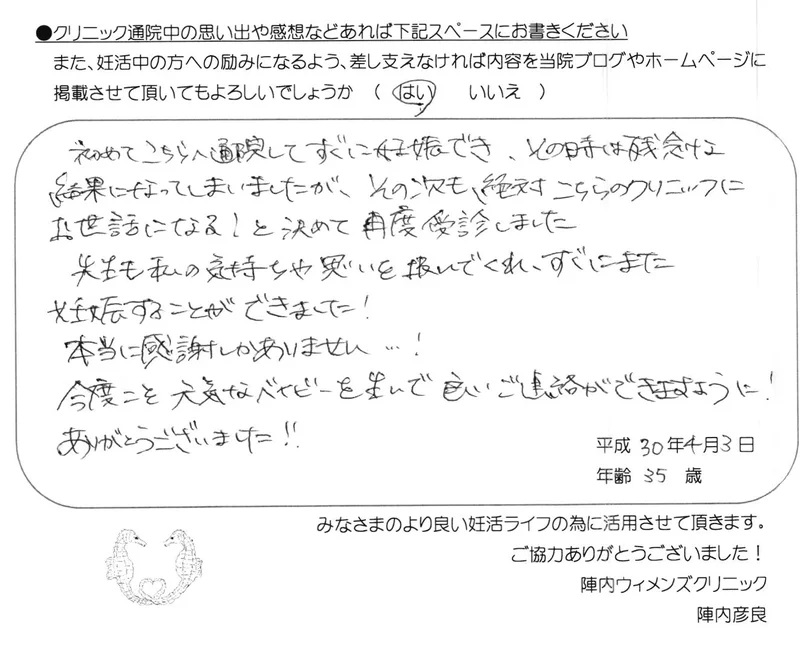 ●クリニック通院中の思い出や感想などあれば下記スペースにお書きください
また、妊活中の方への励みになるよう、差し支えなければ内容を当院ブログやホームページに
掲載させて頂いてもよろしいでしょうか （ はい いいえ ）
初めてこちらへ通院してすぐに妊娠でき、その時は残念な
結果になってしまいましたが、その次も、絶対こちらのクリニックに
お世話になる！と決めて再度受診しました
先生も私の気持ちや思いを扱いでくれ、すぐにまた
妊娠することができました！
本当に感謝しかありません…！
今度こそ元気なベイビーを生んで良いご連絡ができますように！
ありがとうございました!!
平成 30年4月3日
年齢 35 歳
みなさまのより良い妊活ライフの為に活用させて頂きます。
ご協力ありがとうございました！
陣内ウィメンズクリニック
陣内彦良